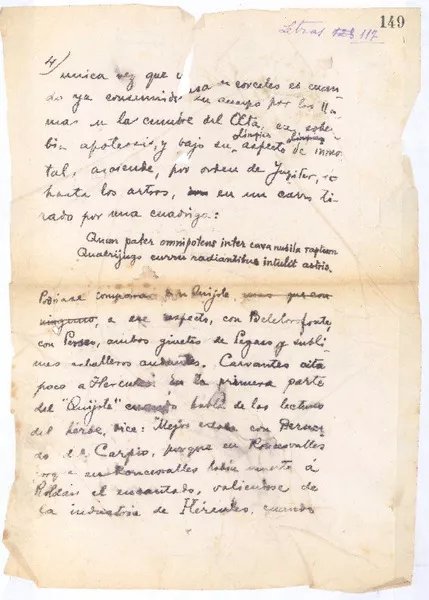 149
Letras 117
4/
única vez que usa corceles es cuan-
do ya consumido su cuerpo por las lla-
mas en la cumbre del Œta, en sober-
bia apoteosis, y bajo su aspecto de inmor-
tal, asciende, por orden de Jupiter,
hasta los astros, en un carro ti-
rado por una cuadriga:
Quem pater omnipotens inter cava nubila raptum
Quadrijugo curru radiantibus intulit astris.
Podríase comparar a Don Quijote, mas que con
ninguno, a ese respecto, con Belelorofonte,
con Perseo, ambos ginetes de Pegaso y subli-
mes caballeros andantes. Cervantes cita
poco a Hercules. En la primera parte
del "Quijote" cuando habla de las lecturas
del héroe, dice: "Mejor estaba con Bernar-
do del Carpio, porque en Roncesvalles
había muerto á
Roldán el encantado, valiendose de
la industria de Hércules, cuando